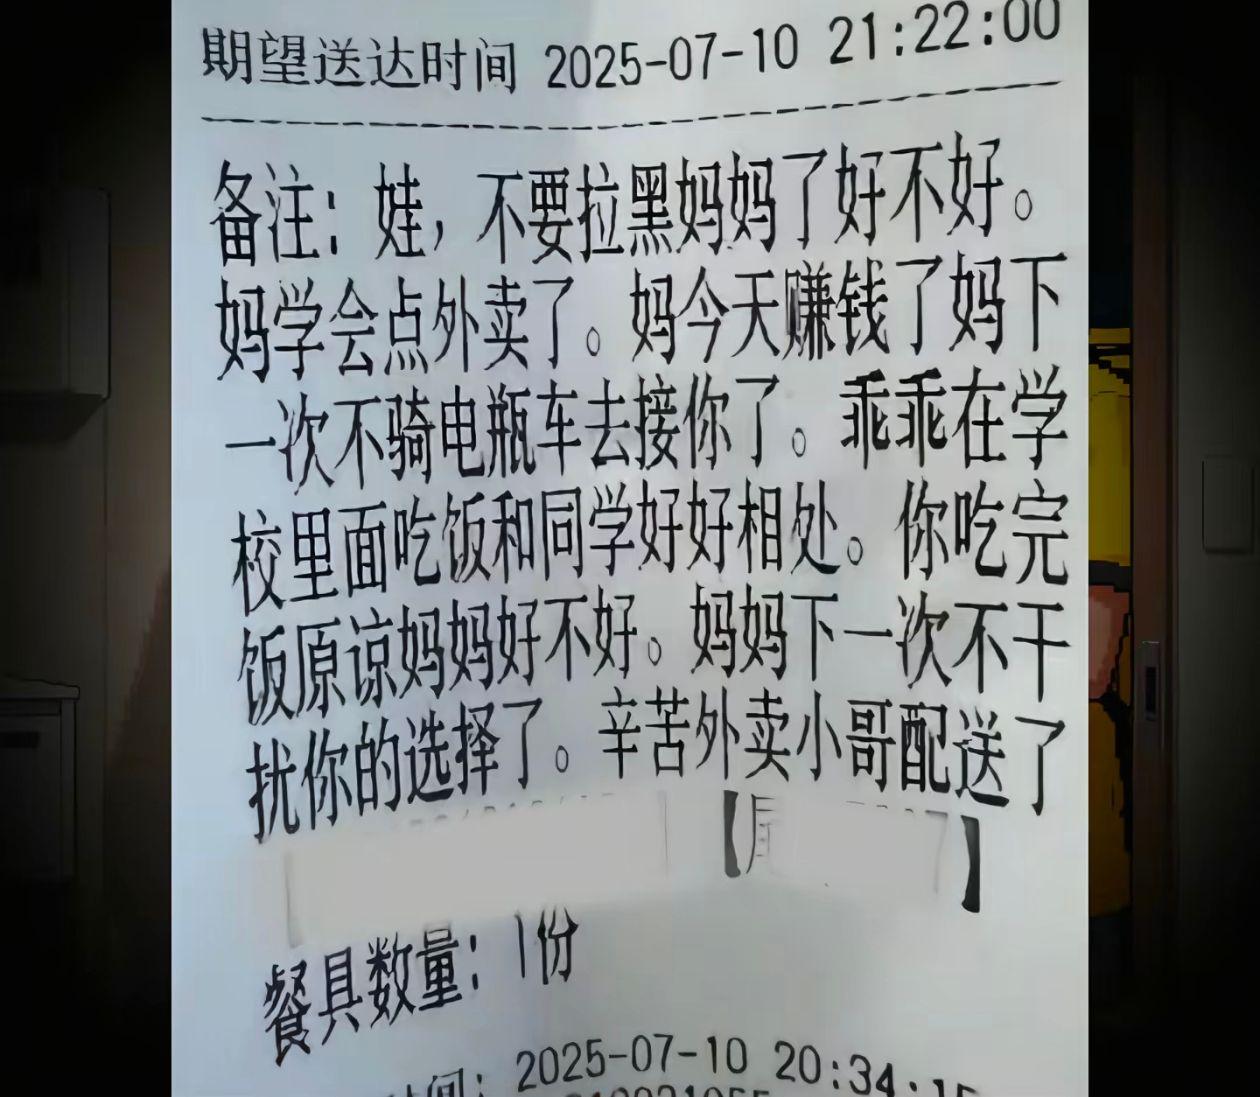 期望送达时间 2025-07-10 21:22:00
备注: 娃, 不要拉黑妈妈了好不好。
妈学会点外卖了。妈今天赚钱了妈下
一次不骑电瓶车去接你了。乖乖在学
校里面吃饭和同学好好相处。你吃完
饭原谅妈妈好不好。妈妈下一次不干
扰你的选择了。辛苦外卖小哥配送了
【尾 】
餐具数量: 1份
时间: 2025-07-10 20:34:15